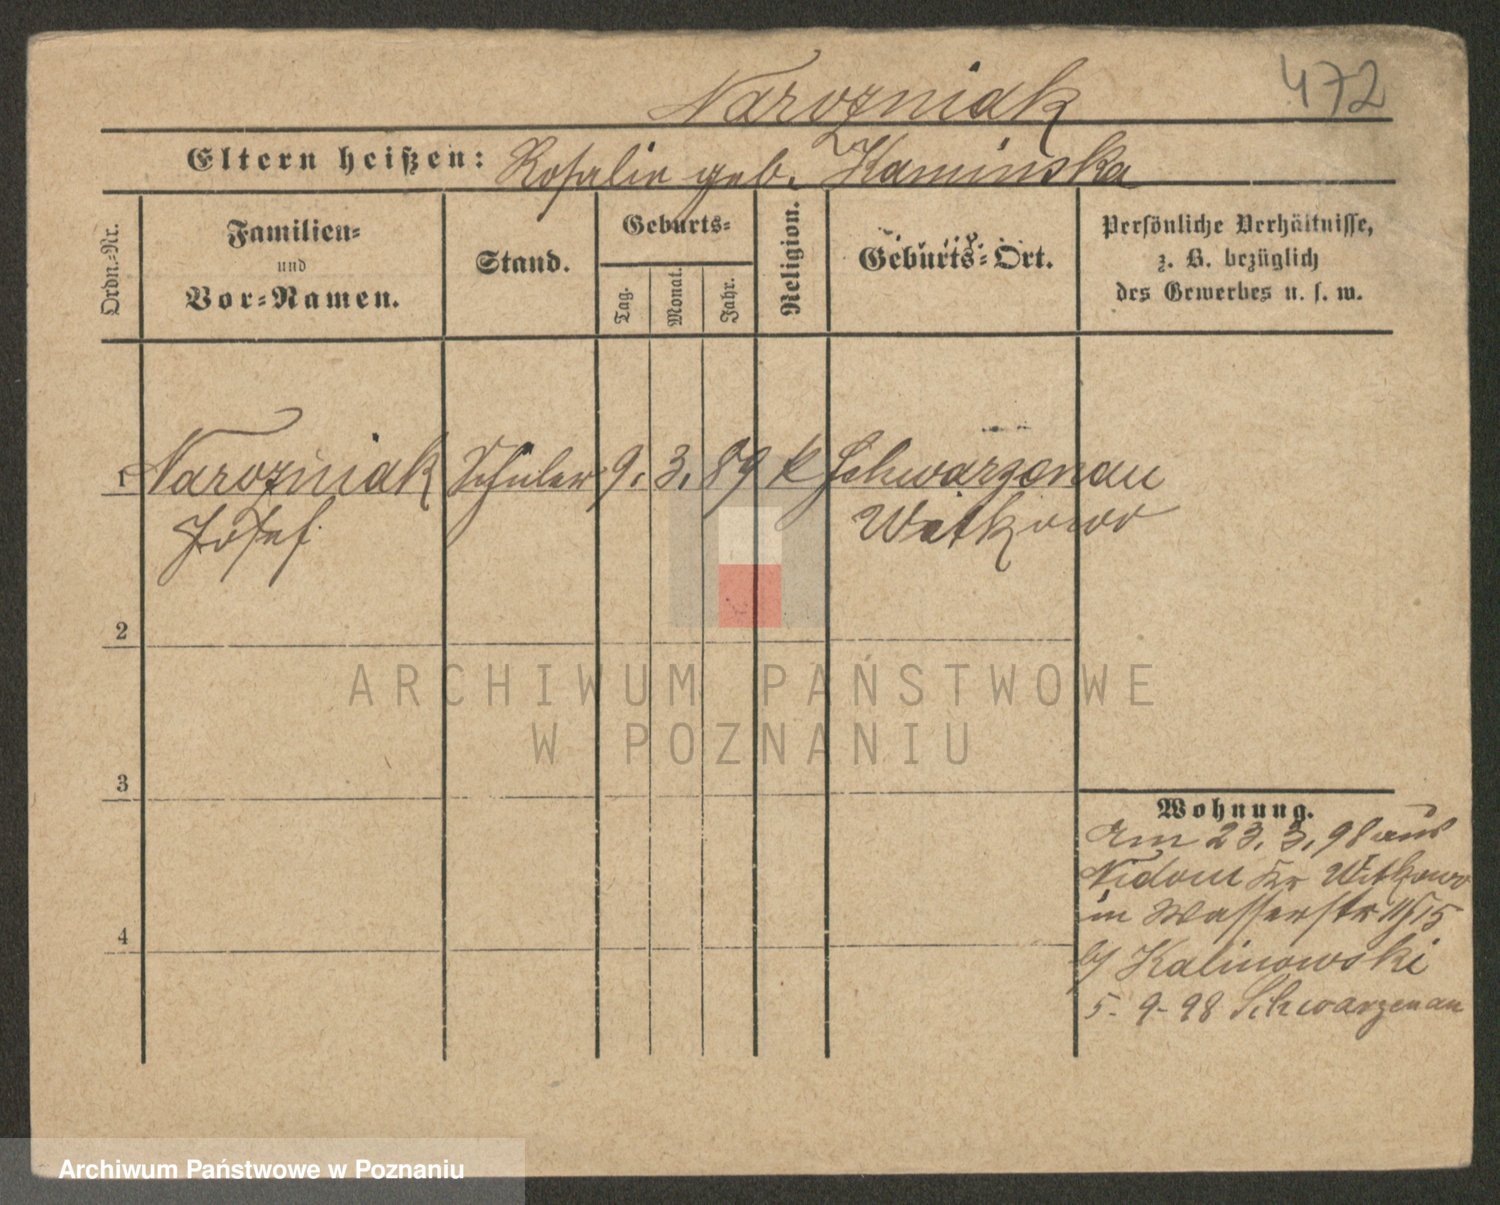 472
Narozniak
Eltern heißen: Rosalie geb. Kaminska
Ordn.-Nr.
Familien-
und
Vor-Namen.
Stand.
Geburts-
Tag.
Monat.
Jahr.
Religion.
Geburts-Ort.
Persönliche Verhältnisse,
z. B. bezüglich
des Gewerbes u. s. w.
1 Narozniak Schüler 9. 3. 89 k Schwarzenau
Josef Witkowo
2
ARCHIWUM PAŃSTWOWE
W POZNANIU
3
Wohnung.
Am 23. 3. 98 aus
Nidom Kr Witkowo
in Wasserstr 15
b/ Kalinowski
4
5-9-98 Schwarzenau
Archiwum Państwowe w Poznaniu